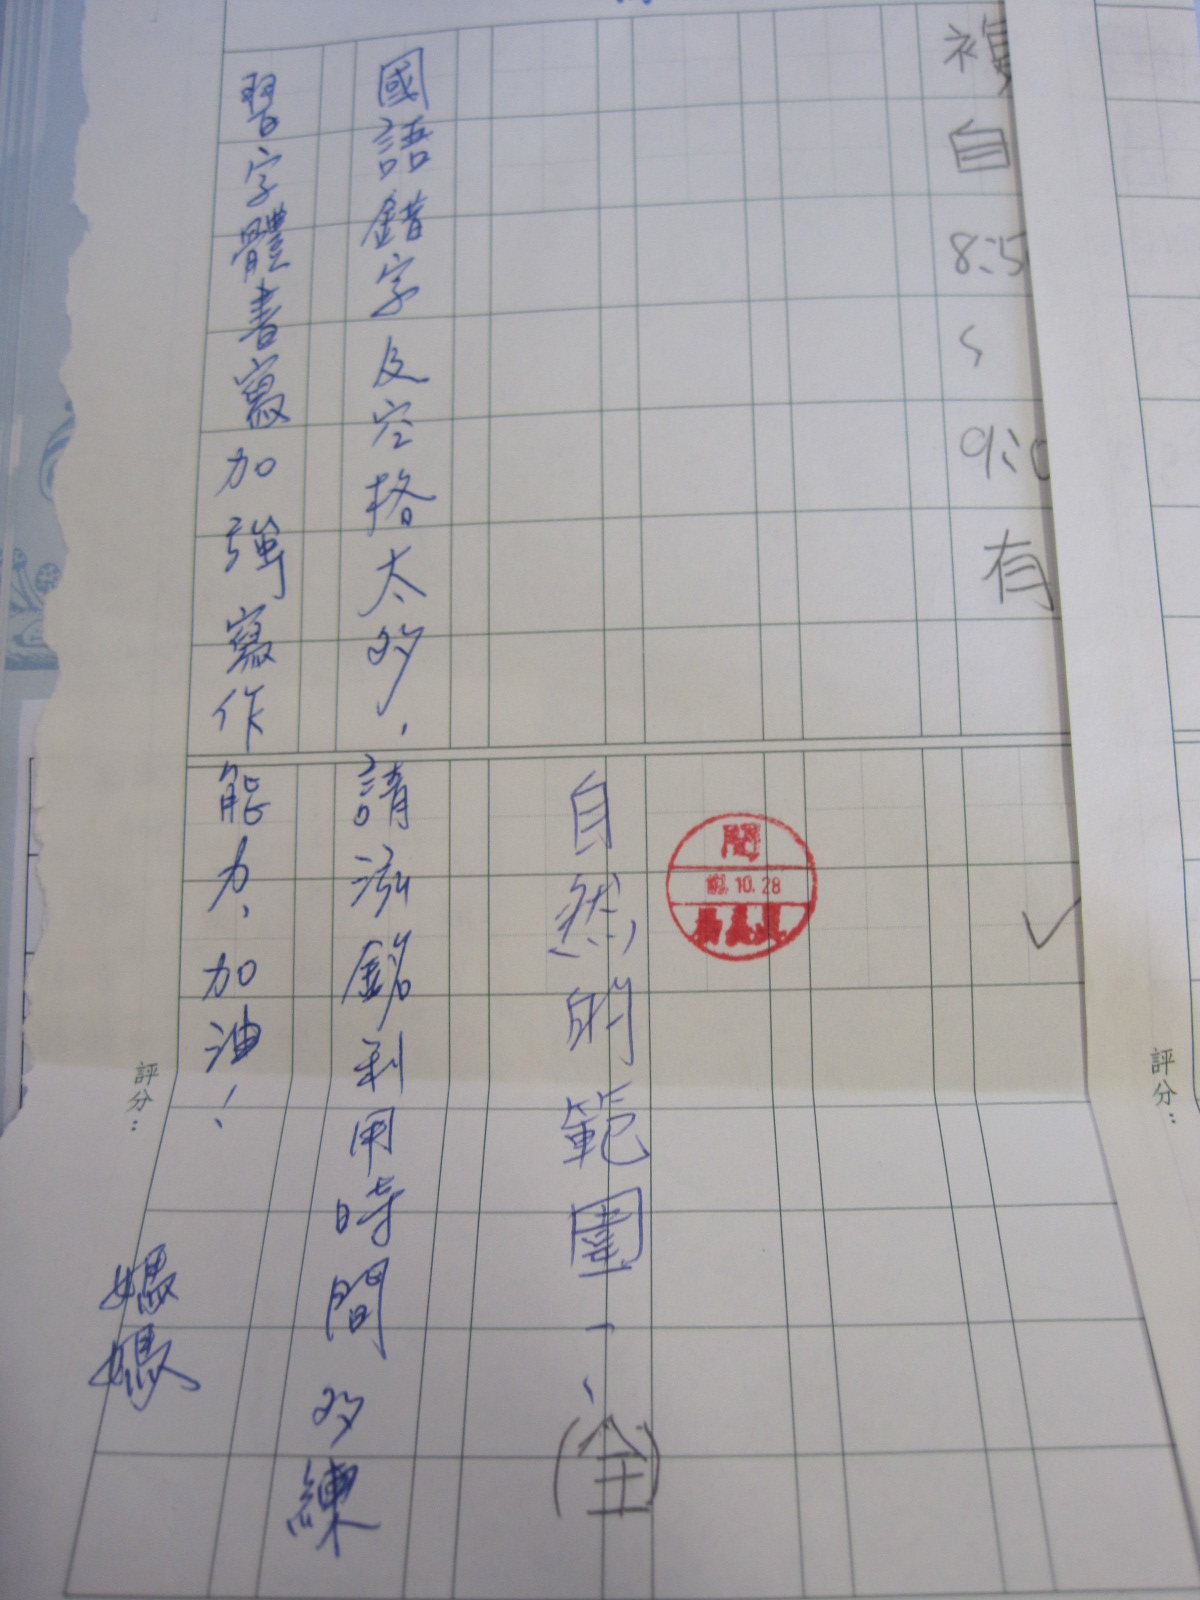 複自8:5~9:0有
✓
閱
10.28
自然的範圍一、(全)
國語錯字及空格太多,請泓銘利用時間多練
習字體書寫加強寫作能力,加油!
媽媽
評分:
評分: